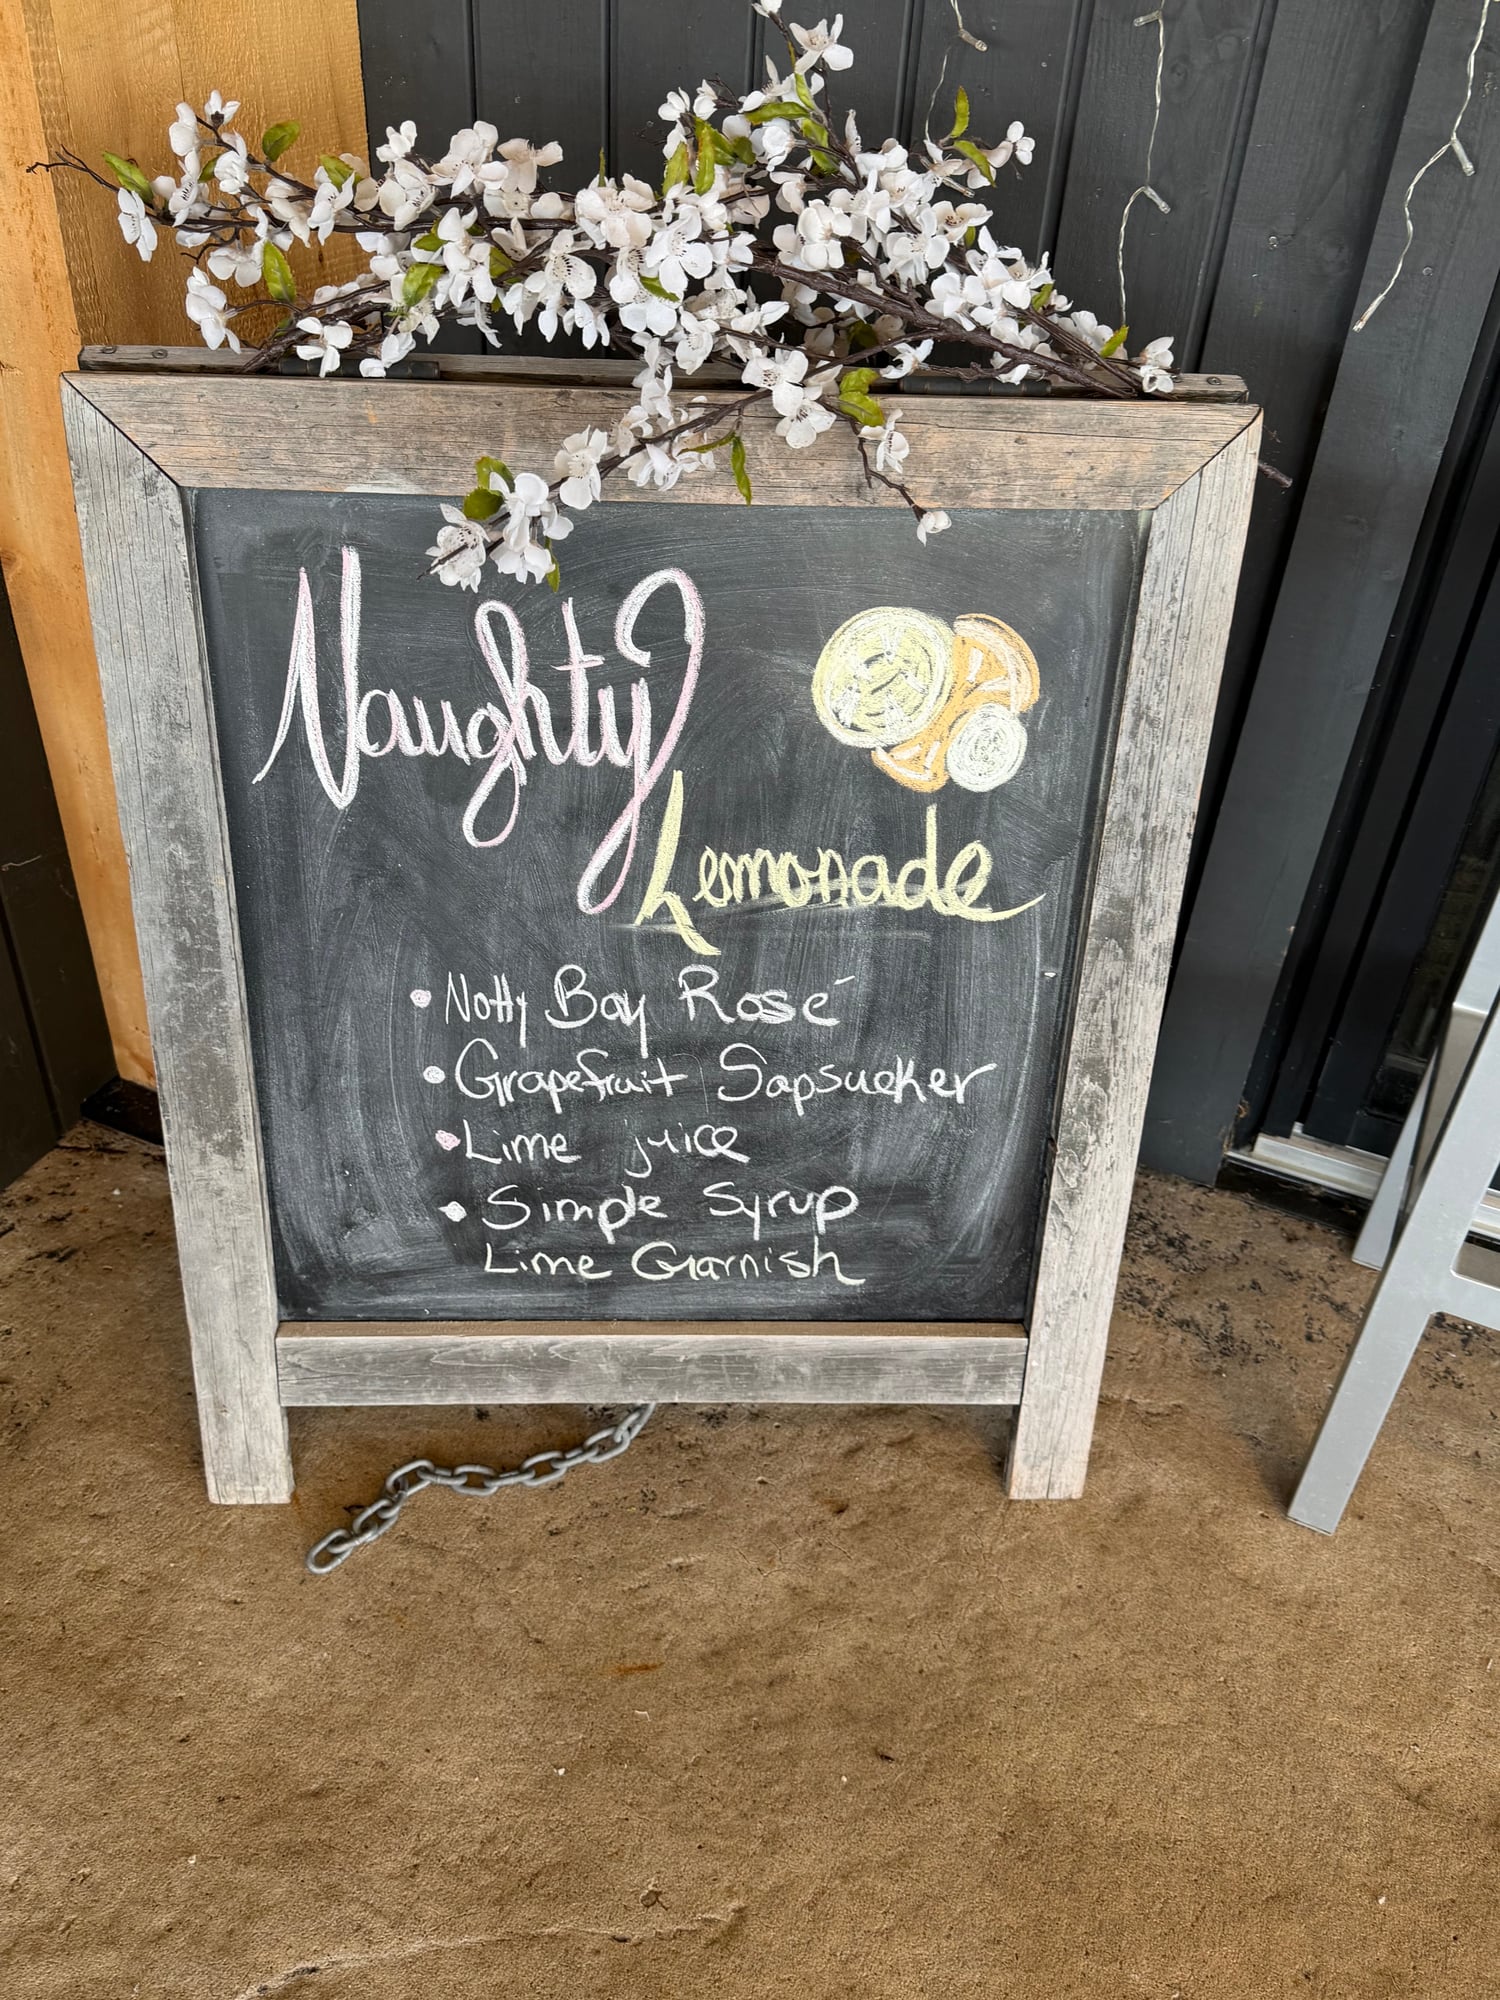 Naughty
Lemonade
• Notty Bay Rosé
• Grapefruit Sapsucker
• Lime juice
• Simple Syrup
Lime Garnish